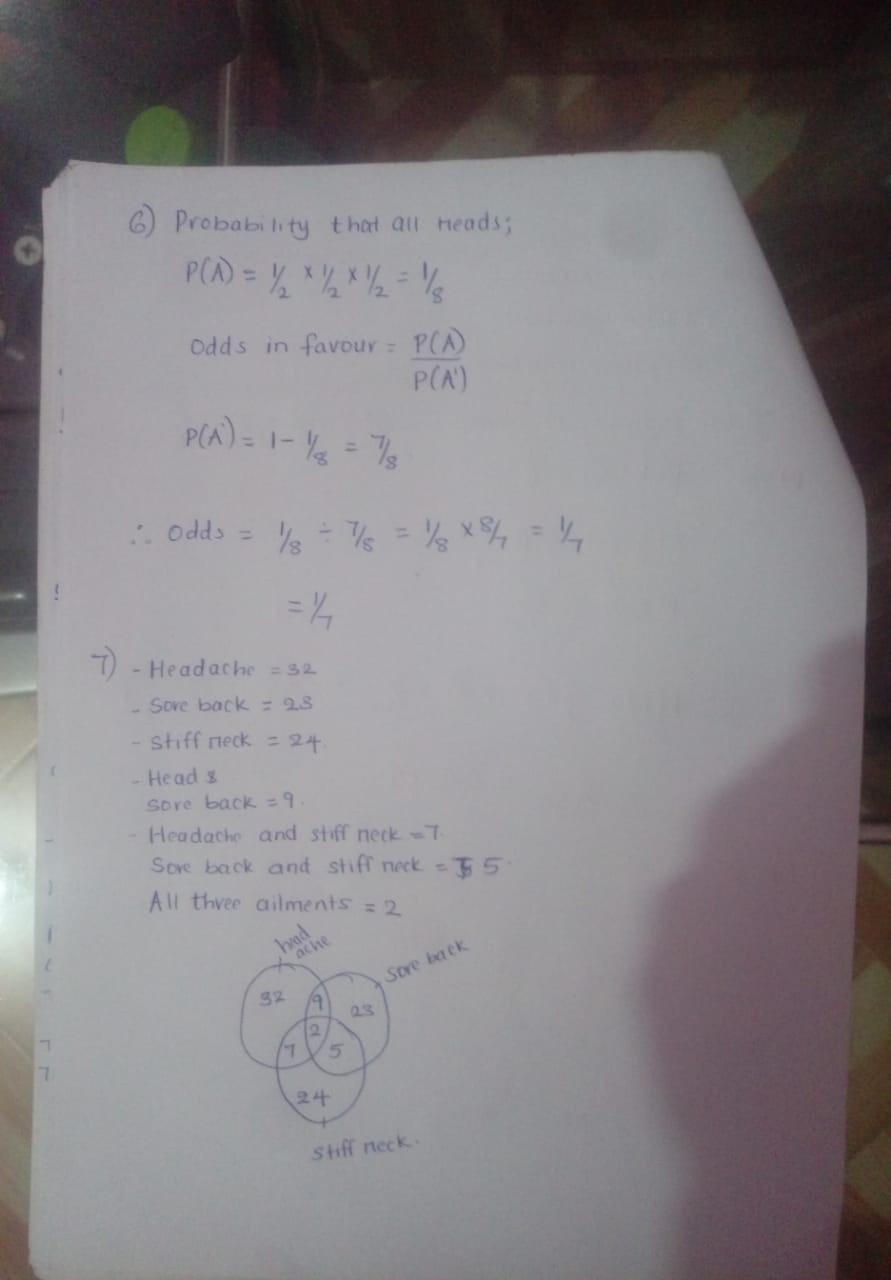 6) Probability that all Heads;
P(A) = 1/2 x 1/2 x 1/2 = 1/8
Odds in favour = P(A)
P(A')
P(A') = 1 - 1/8 = 7/8
∴ Odds = 1/8 ÷ 7/8 = 1/8 x 8/7 = 1/7
= 1/7
7) - Headache = 32
- Sore back = 23
- Stiff neck = 24.
- Head &
sore back = 9.
- Headache and stiff neck = 7.
Sore back and stiff neck = 5.
All three ailments = 2
head
ache
sore back
32 9 23
2
7 5
24
stiff neck.